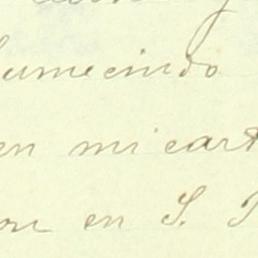 umecindo
en mi cart
on en S.